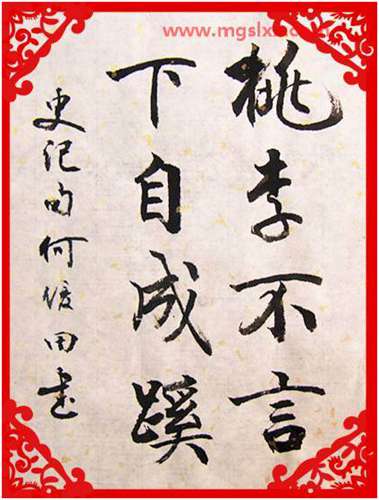 www.mgslx
桃李不言
下自成蹊
史记句何俊田書